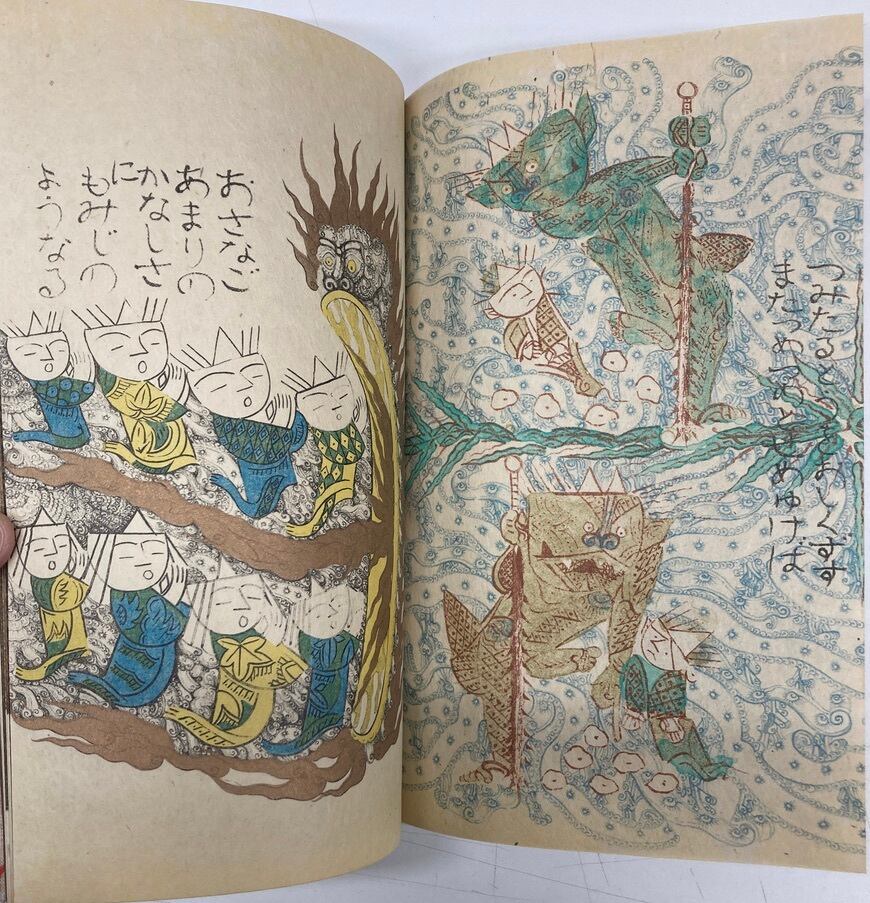 つみたるとうをおしくずす
またつめつめとせめゆけば
おさなご
あまりの
かなしさ
に
もみじの
ようなる